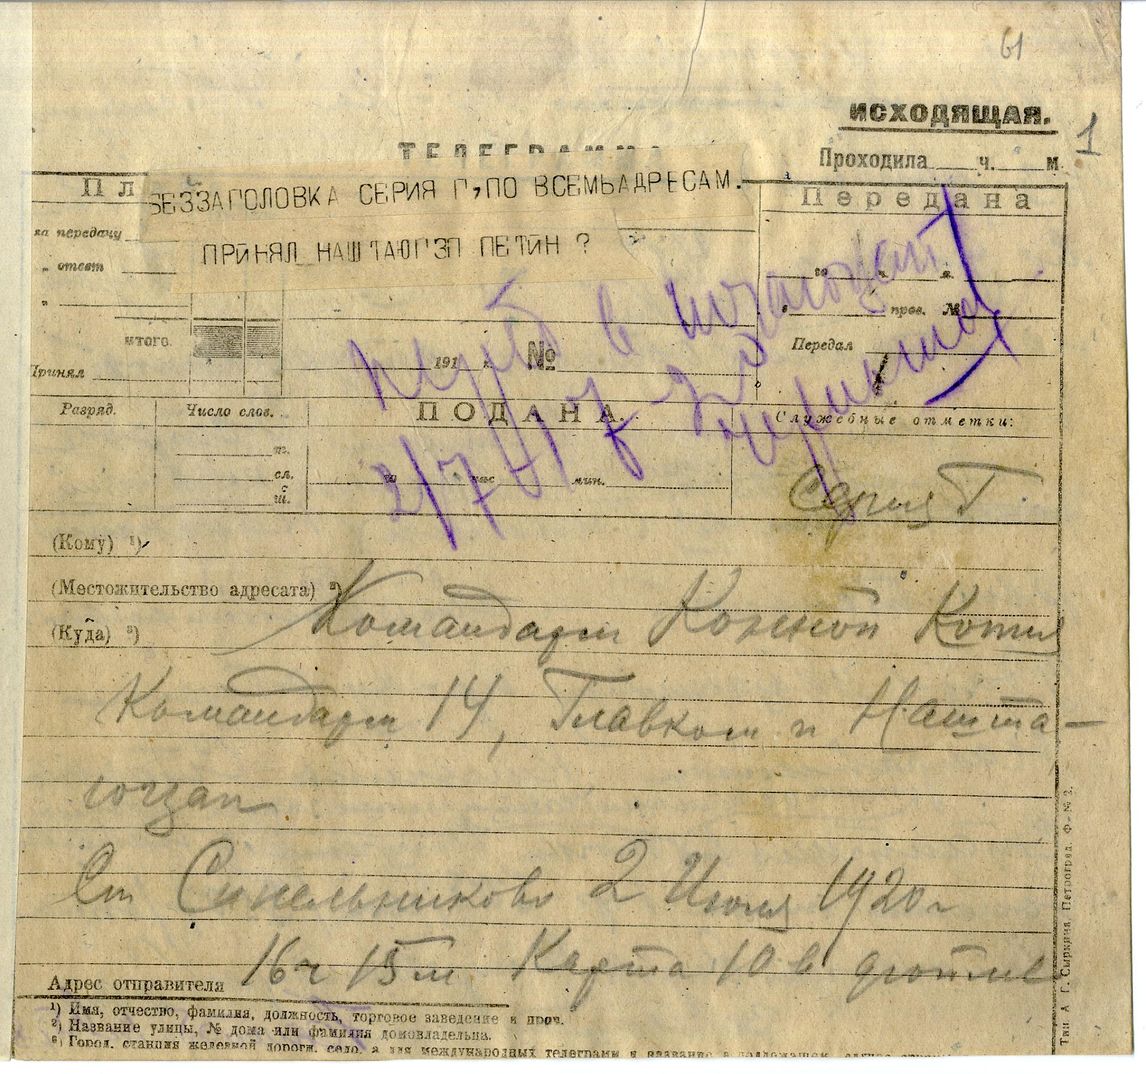 61
ИСХОДЯЩАЯ.
1
ТЕЛЕГРАММА
Проходила ч. м.
БЕЗЗАГОЛОВКА СЕРИЯ Г,ПО ВСЕМЬАДРЕСАМ.
ПРИНЯЛ НАШТАЮГЗП ПЕТИН ?
Передана
за передачу
„ ответ
„
итого.
Принял
191 г. №
го ч. м.
в пров. №
Передал
2/7
Разряд.
Число слов.
т.
сл.
с
ш.
ПОДАНА.
го час мин.
Служебные отметки:
Серия Г
(Кому) ¹)
(Местожительство адресата) ²)
(Куда) ³)
Командарм Конной Копия
Командарм 14, Главком и Нашта-
югзап
Ст Синельниково 2 Июля 1920 г
16 ч 15 м Карта 10 в дюйме
Адрес отправителя
¹) Имя, отчество, фамилия, должность, торговое заведение и проч.
²) Название улицы, № дома или фамилия домовладельца.
³) Город, станция железной дороги, село, а для международных телеграмм и название
Тип. А. Г. Сыркина, Петроград. Ф. № 2.